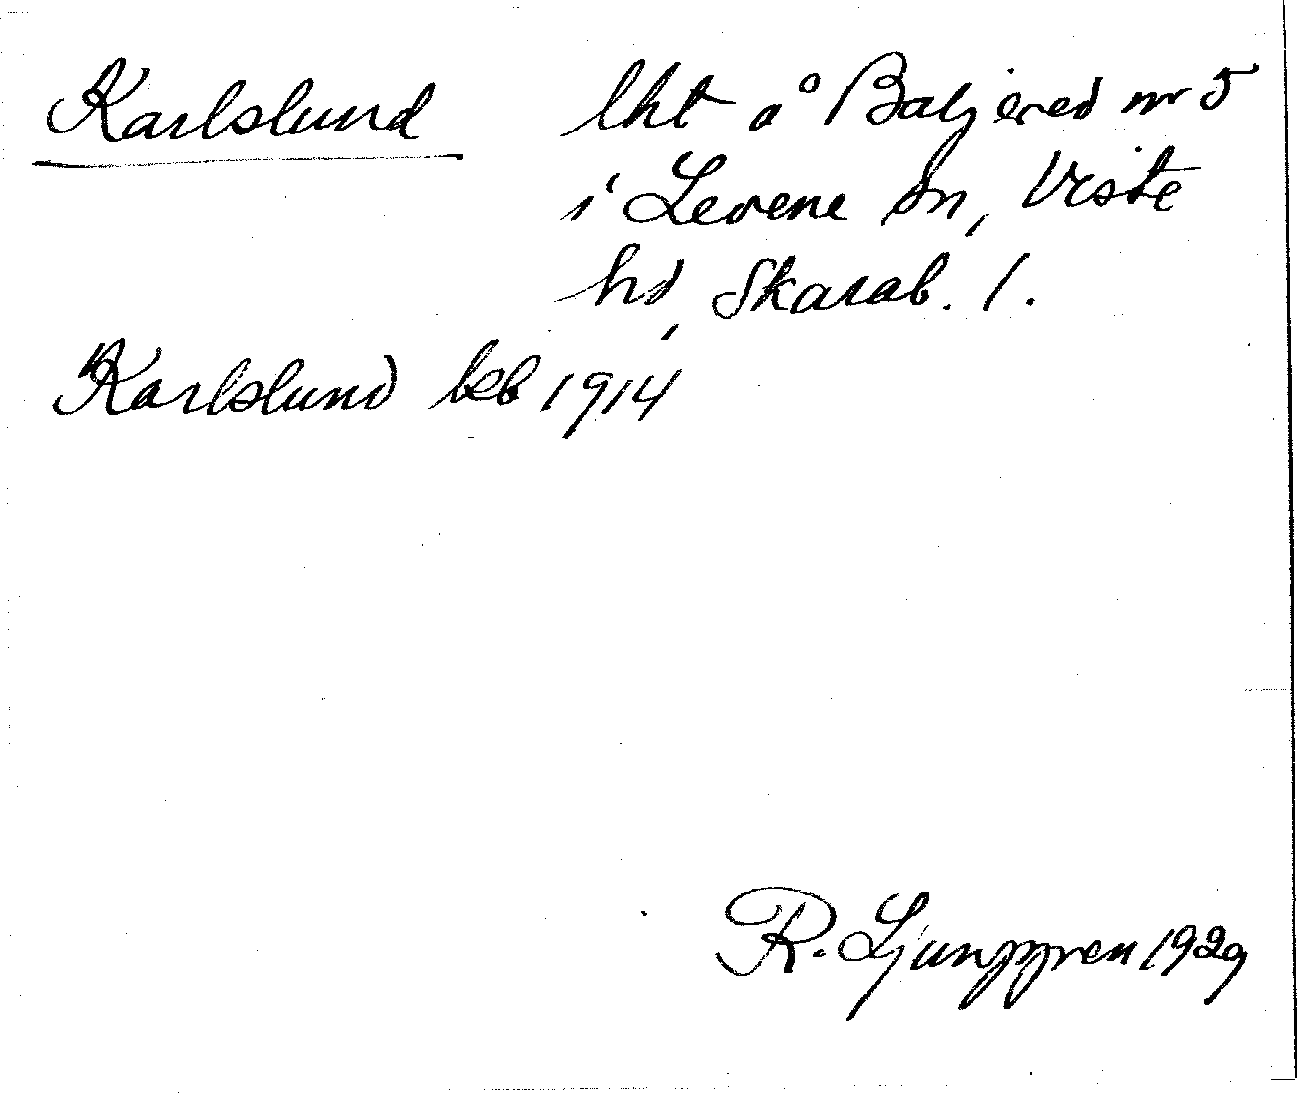 Karlslund lht å Baljered nr 5
i Levene sn, Viste
hd, Skarab. l.
Karlslund keb 1914
R. Ljunggren 1929